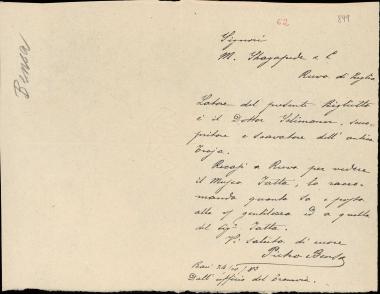 Bensa
62
899
Signori
M. & C.
Ruvo di Puglia
Latore del presente Biglietto
è il Dottor Sclimann, scuo-
pritore e scavatore dell'antica
Troja.
Recasi a Ruvo per vedere
il Museo Jatta, lo racco-
mando quanto so e posso
alla gentilezza ed a quella
del Sig. Jatta.
Vi saluto di cuore
Pietro Bensa
Bari 24/
Dall'ufficio del Tranvia.